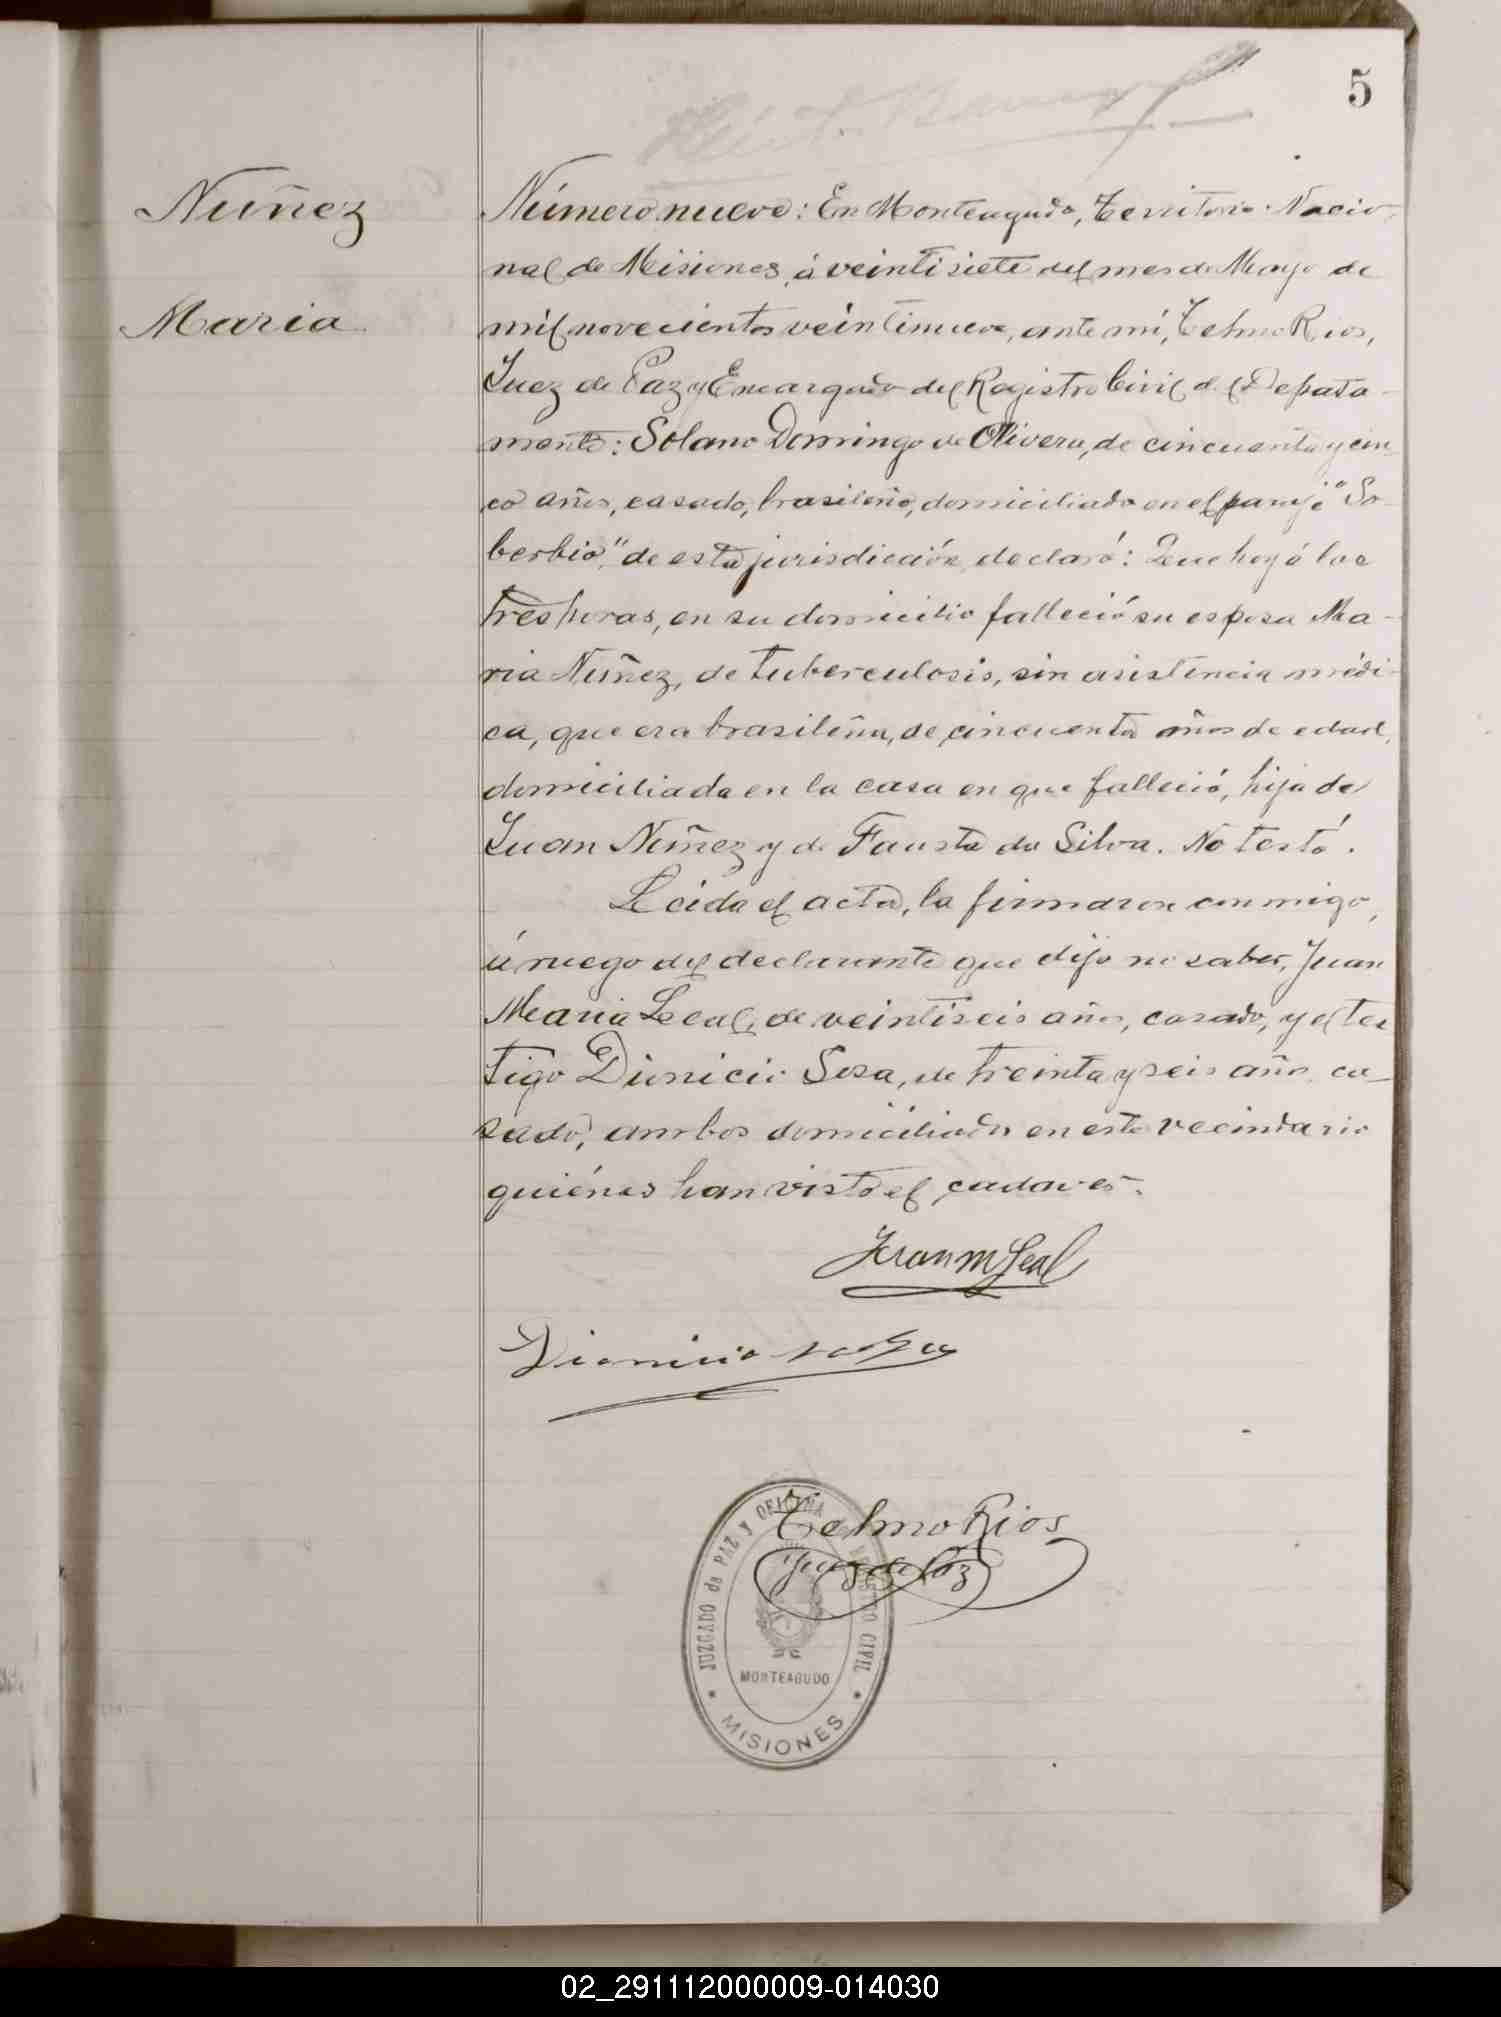 5
Nuñez
Maria
Número nueve: En Monteagudo, Territorio Nacio-
nal de Misiones, á veintisiete del mes de Mayo de
mil novecientos veintinueve, ante mí, Telmo Rios,
Juez de Paz y Encargado del Registro Civil del Depata-
mento: Solano Domingo de Olivera, de cincuenta y cin-
co años, casado, brasileño, domiciliado en el paraje "So-
berbio", de esta jurisdicción, declaró: Que hoy á las
tres horas, en su domicilio falleció su esposa Ma-
ria Nuñez, de tuberculosis, sin asistencia médi-
ca, que era brasileña, de cincuenta años de edad,
domiciliada en la casa en que falleció, hija de
Juan Nuñez y de Fausta da Silva. No testó.
Leida el acta, la firmaron conmigo,
á ruego del declarante que dijo no saber, Juan
Maria Leal, de veintiseis años, casado, y el tes
tigo Dionicio Sosa, de treinta y seis años, ca-
sado, ambos domiciliados en este vecindario
quiénes han visto el cadaver.
Juan M Leal
Dionicio Sosa
Telmo Rios
Juez de Paz
JUZGADO de PAZ Y OFICINA DE REGISTRO CIVIL
MONTEAGUDO
MISIONES
02_291112000009-014030